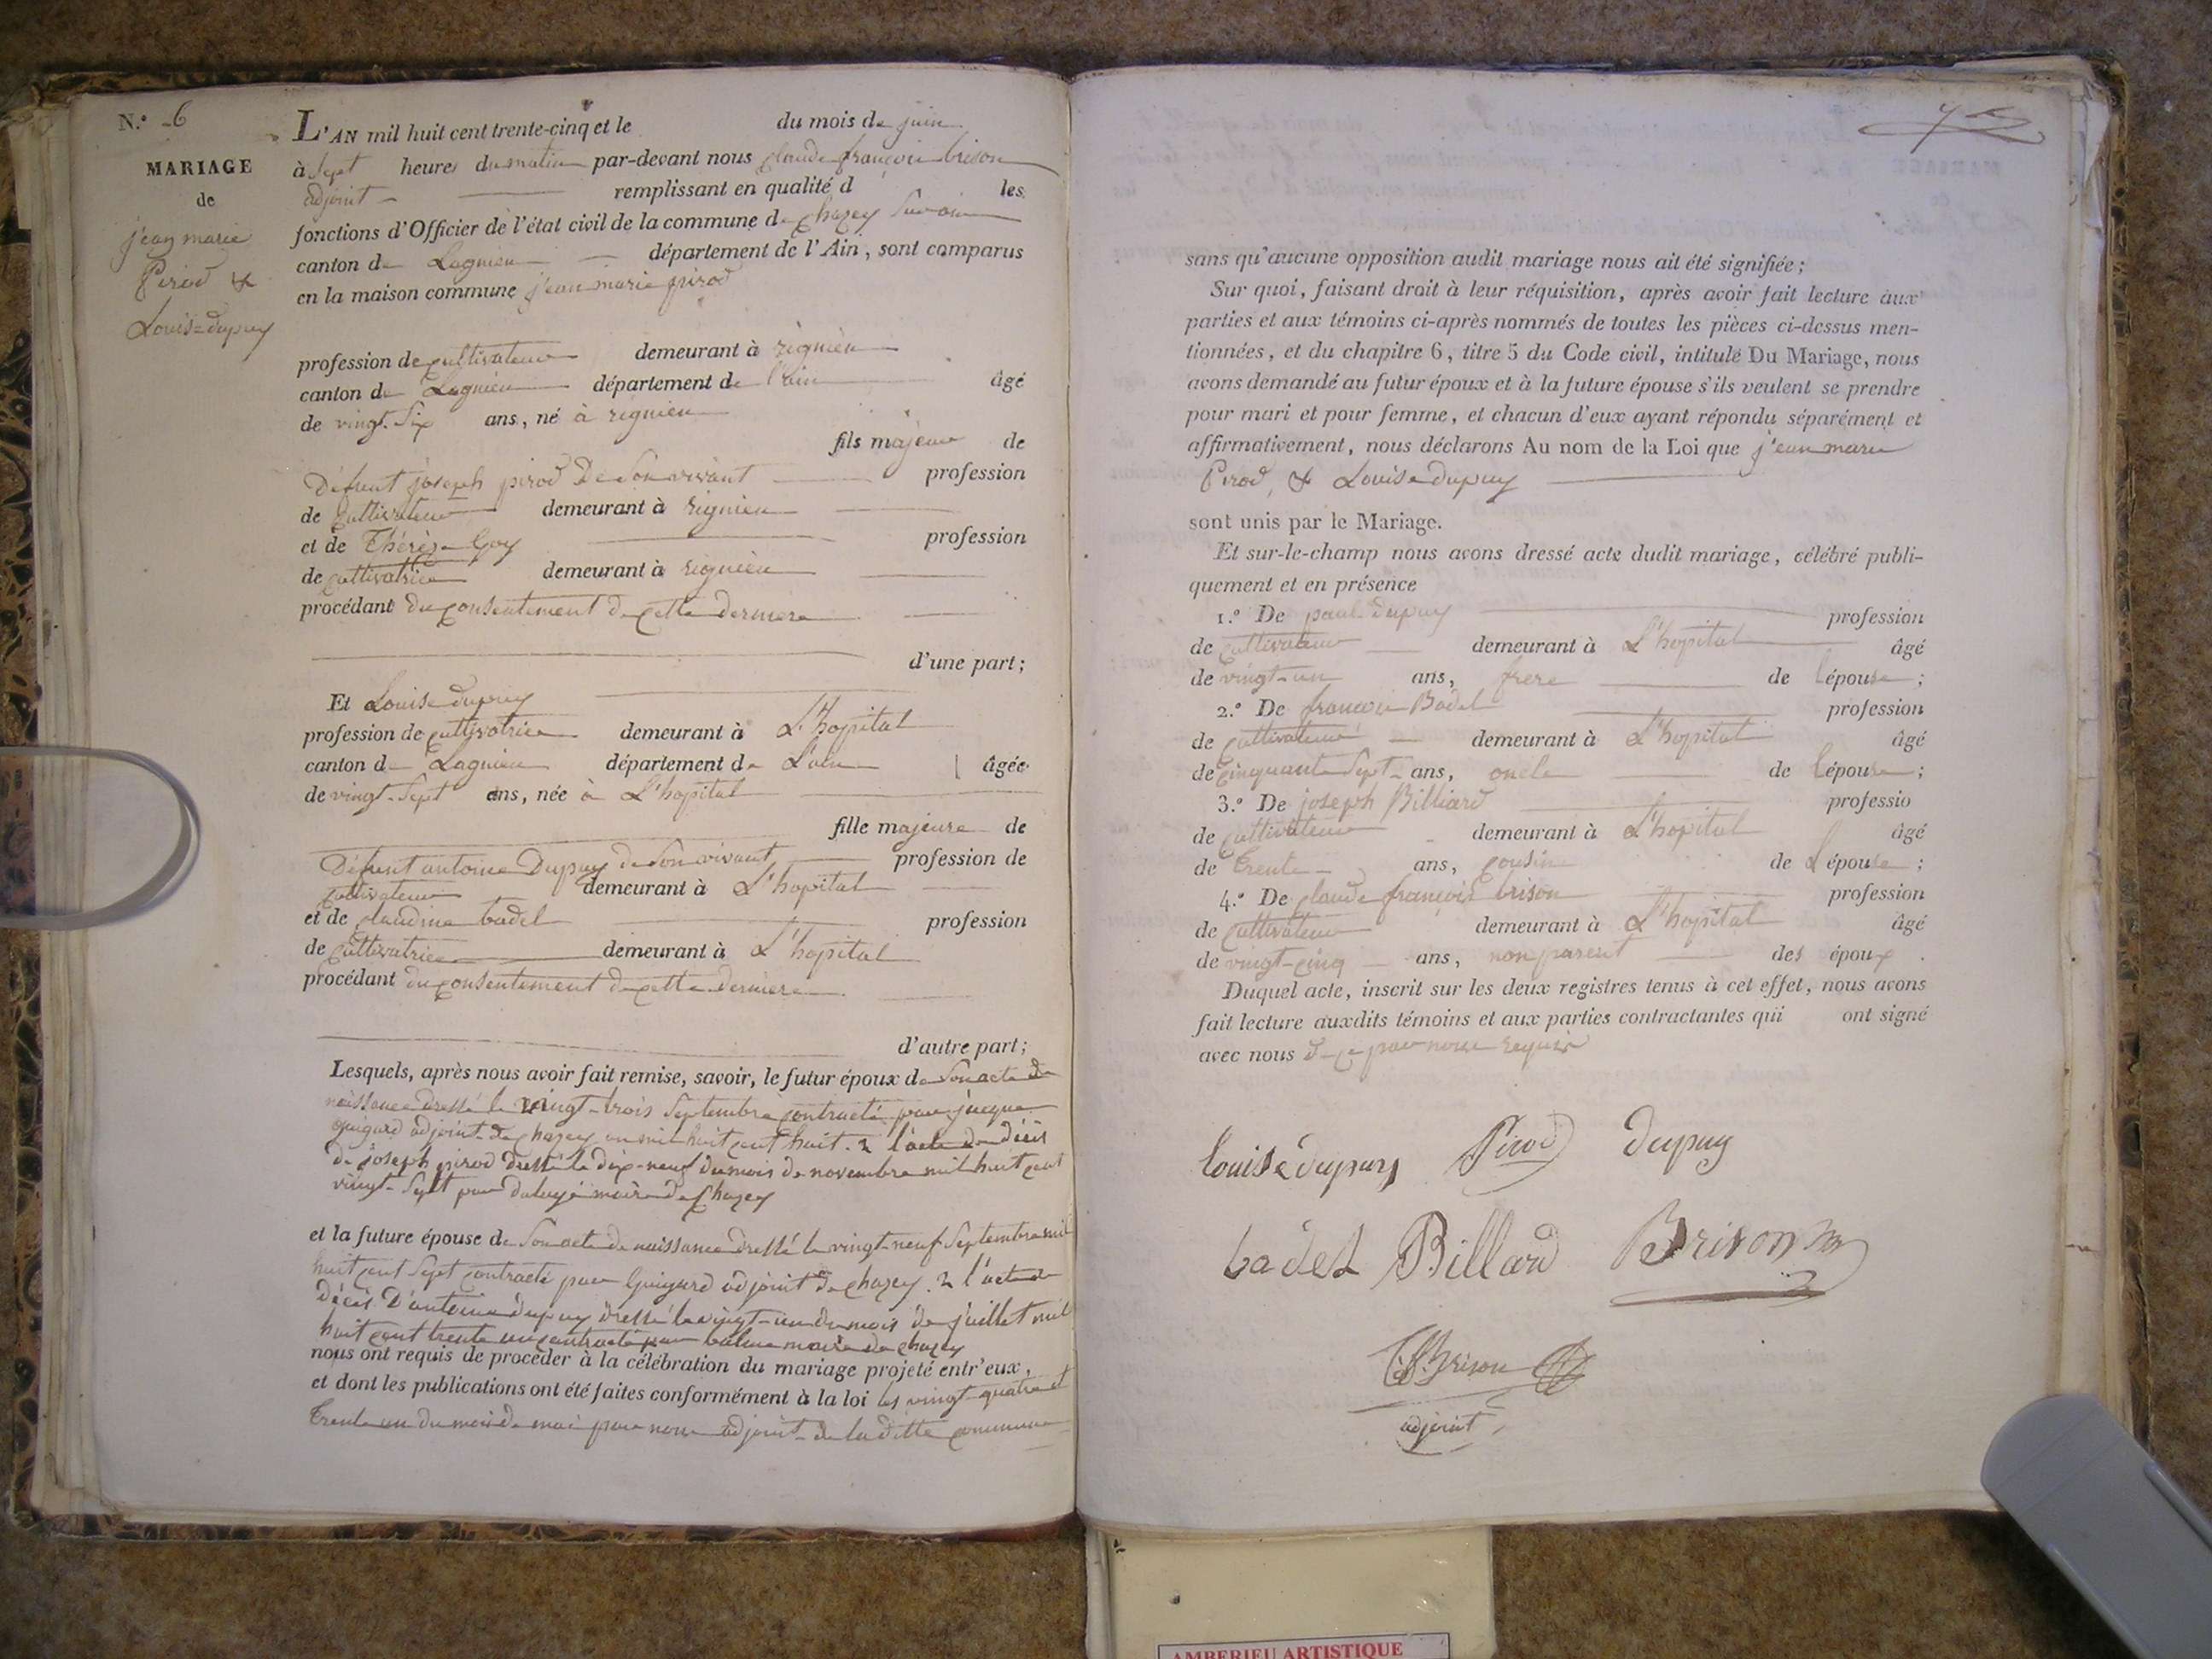 N.° 6
MARIAGE
de
jean marie
Pirod &
Louise dupuy
L'AN mil huit cent trente-cinq et le du mois de juin
à sept heures du matin par-devant nous claude françois brison
adjoint remplissant en qualité d les
fonctions d'Officier de l'état civil de la commune de chazey sur ain
canton de Lagnieu département de l'Ain, sont comparus
en la maison commune jean marie pirod
profession de cultivateur demeurant à rignieu
canton de Lagnieu département de l'ain âgé
de vingt-six ans, né à rignieu
fils majeur de
Défunt joseph pirod De son vivant profession
de cultivateur demeurant à rignieu
et de Thérèse Goy profession
de cultivatrice demeurant à rignieu
procédant du consentement de cette derniere
d'une part;
Et Louise dupuy
profession de cultivatrice demeurant à L'hopital
canton de Lagnieu département de L'ain âgée
de vingt-sept ans, née à L'hopital
fille majeure de
Défunt antoine Dupuy de son vivant profession de
cultivateur demeurant à L'hopital
et de claudine badel profession
de cultivatrice demeurant à L'hopital
procédant du consentement de cette derniere
d'autre part;
Lesquels, après nous avoir fait remise, savoir, le futur époux de son acte de
naissance dressé le vingt-trois septembre contracté par jacque
guigard adjoint de chazey an mil huit cent huit. 2 l'acte de décès
de joseph pirod dressé le dix-neuf du mois de novembre mil huit cent
vingt-sept par maire de chazey
et la future épouse de son acte de naissance dressé le vingt-neuf septembre mil
huit cent sept contracté par Guigard adjoint de chazey. 2 l'acte de
décès D'antoine dupuy dressé le vingt-un du mois de juillet mil
huit cent trente un contracté par maire de chazey
nous ont requis de procéder à la célébration du mariage projeté entr'eux,
et dont les publications ont été faites conformément à la loi les vingt-quatre et
trente un du mois de mai par nous adjoint de la ditte commune
sans qu'aucune opposition audit mariage nous ait été signifiée;
Sur quoi, faisant droit à leur réquisition, après avoir fait lecture aux
parties et aux témoins ci-après nommés de toutes les pièces ci-dessus men-
tionnées, et du chapitre 6, titre 5 du Code civil, intitulé Du Mariage, nous
avons demandé au futur époux et à la future épouse s'ils veulent se prendre
pour mari et pour femme, et chacun d'eux ayant répondu séparément et
affirmativement, nous déclarons Au nom de la Loi que jean marie
Pirod, & Louise dupuy
sont unis par le Mariage.
Et sur-le-champ nous avons dressé acte dudit mariage, célébré publi-
quement et en présence
1.° De paul dupuy profession
de cultivateur demeurant à L'hopital âgé
de vingt-un ans, frere de lépouse;
2.° De françois Badel profession
de cultivateur demeurant à L'hopital âgé
de cinquante sept ans, oncle de lépouse;
3.° De joseph Billiard professio
de cultivateur demeurant à L'hopital âgé
de trente ans, cousin de L'épouse;
4.° De claude françois brison profession
de cultivateur demeurant à L'hopital âgé
de vingt-cinq ans, non parent des époux.
Duquel acte, inscrit sur les deux registres tenus à cet effet, nous avons
fait lecture auxdits témoins et aux parties contractantes qui ont signé
avec nous de ce par nous requis
louise dupuy Pirod dupuy
badel Billard Brison
C.f. Brison
adjoint
AMBERIEU ARTISTIQUE